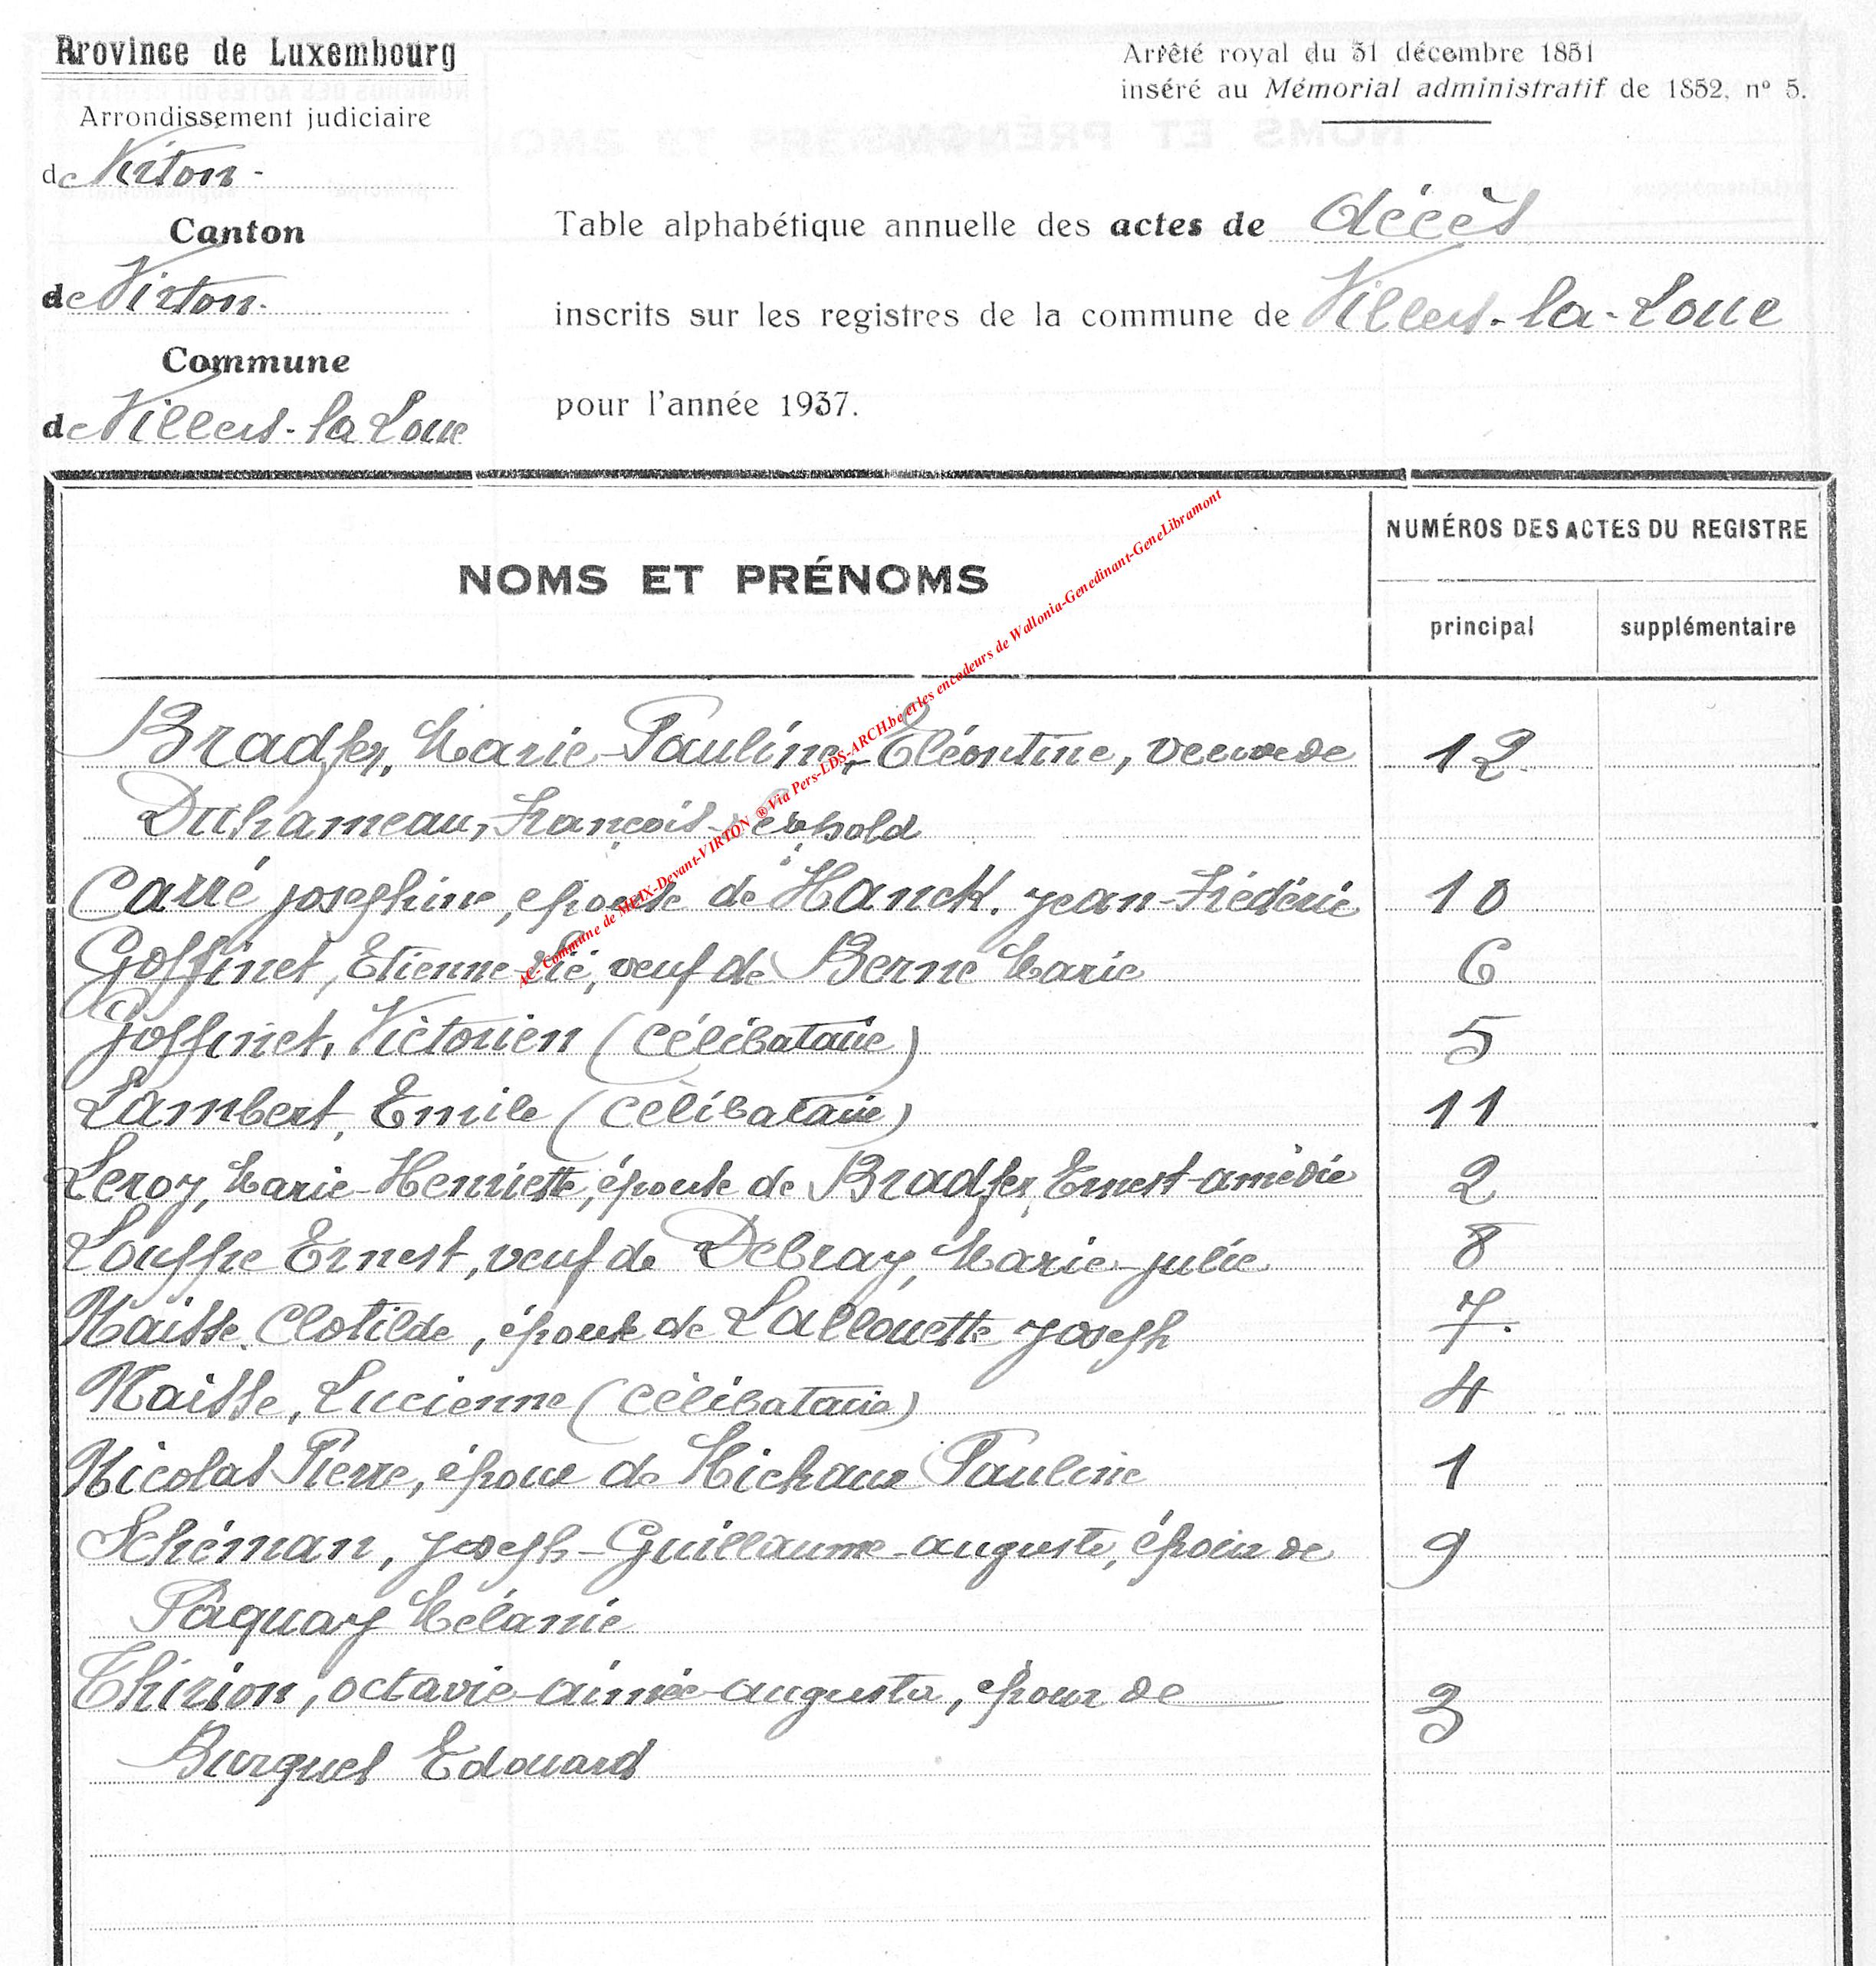 Province de Luxembourg
Arrondissement judiciaire
de Virton -
Canton
de Virton.
Commune
de Villers-la Loue
Arrêté royal du 31 décembre 1851
inséré au Mémorial administratif de 1852, n° 5.
Table alphabétique annuelle des actes de décès
inscrits sur les registres de la commune de Villers-la-Loue
pour l'année 1937.
NOMS ET PRÉNOMS
NUMÉROS DES ACTES DU REGISTRE
principal supplémentaire
AC- Commune de MEIX-Devant-VIRTON ® Via Pers-LDS-ARCH.be et les encodeurs de Wallonia-Genedinant-GeneLibramont
Bradfer, Marie-Pauline-Eléontine, veuve de 12
Duhameau, François-
Carré Joséphine, épouse de Hanck. Jean-Frédéric 10
Goffinet, Etienne- veuf de Berne Marie 6
Goffinet, Victorien (célibataire) 5
Lambert, Emile (célibataire) 11
Leroy, Marie-Henriette, épouse de Bradfer, Ernest-amédée 2
Louppe Ernest, veuf de Debray, Marie-julie 8
Maisse Clotilde, épouse de Lallouette Joseph 7.
Maisse, Lucienne (célibataire) 4
Nicolas Pierre, époux de Michaux Pauline 1
Schéman, Joseph-Guillaume-auguste, époux de 9
Pâquay Mélanie
Thirion, octavie-aimée-augusta, épouse de 3
Edouard